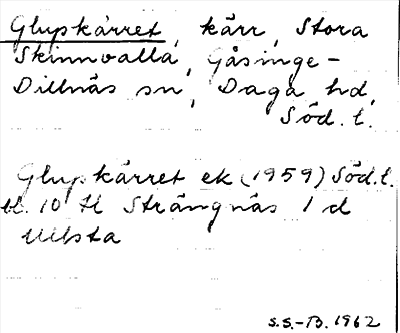 Glupkärret, kärr, Stora
Skinnvalla, Gåsinge-
Dillnäs sn, Daga hd,
Söd. l.
Glupkärret ek (1959) Söd. l.
bl. 10 H Strängnäs 1 d
Ullsta
S.S.-B. 1962